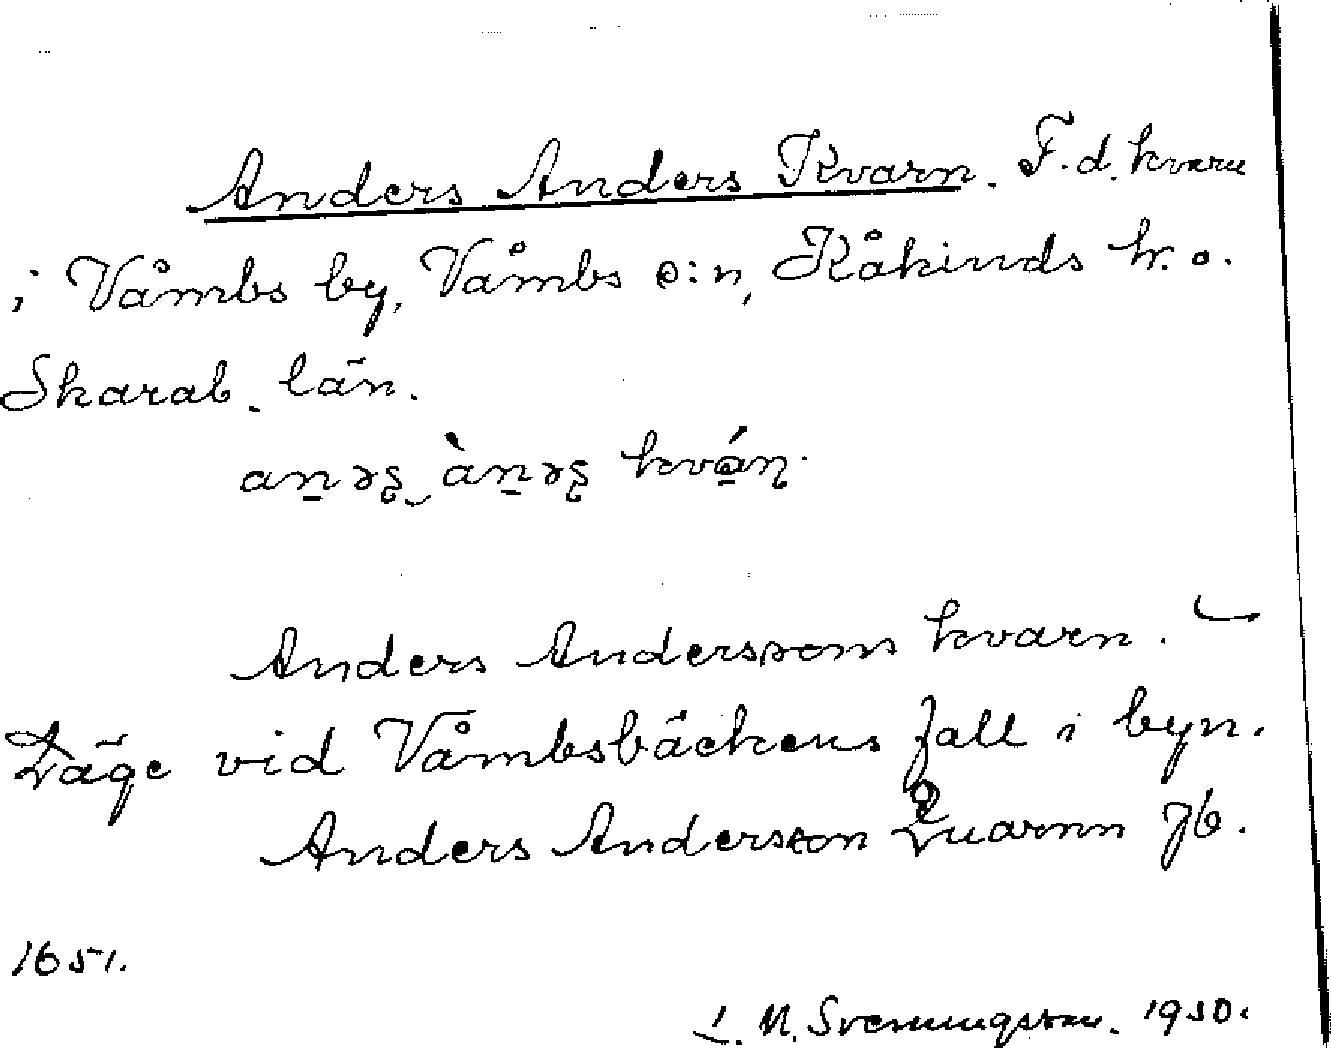 Anders Anders Kvarn. F.d. kvarn
i Våmbs by, Våmbs s:n, Kåkinds hr. o.
Skarab. län.
an̠əʂ‿àn̠əʂ kvá̠ɳ.
Anders Anderssons kvarn.
Läge vid Våmbsbäckens fall i byn.
Anders Andersson Quarnn Jb.
1651.
L. M. Svenungsson. 1930.